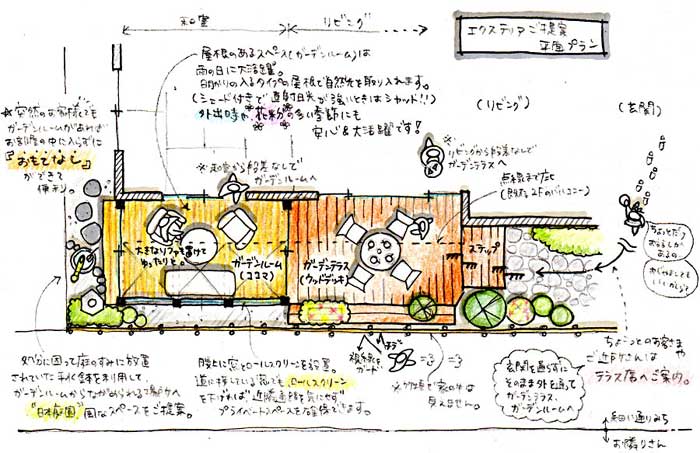 エクステリアご提案
平面プラン
和室
リビング
屋根のあるスペース(ガーデンルーム)は
雨の日に大活躍。
明かりの入るタイプの屋根で自然光を取り入れます。
(シェード付きで直射日光が強いときはシャット!!)
外出時や花粉の多い季節にも
安心&大活躍です!
(リビング)
(玄関)
※突然のお客様でも
ガーデンルームがあれば
お部屋の中に入らずに
『おもてなし』
ができて
便利。
※和室から段差なしで
ガーデンルームへ
※リビングから段差なしで
ガーデンテラスへ
点線まで屋根
(既存2Fのバルコニー)
大きなソファを置けて
ゆったりと。
ガーデンルーム
(ココマ)
ガーデンテラス
(ウッドデッキ)
ステップ
ちょっとだけ
おはなしが
あるの
わざわざあがらなくても
いいかしら?
ちょっとのお客さまや
ご近所さんは
テラス席へご案内。
処分に困って庭のすみに放置
されていた手水鉢を利用して、
ガーデンルームからながめられる場所へ
"日本庭園"風なスペースをご提案。
腰上に窓とロールスクリーンを設置。
道に接している窓でも、ロールスクリーン
を下げれば近隣・通路を気にせず
プライベートスペースを確保できます。
視線を
ガード
※外から家の中は
見えません。
玄関を通らずに
そのまま外を通って
ガーデンテラス、
ガーデンルームへ
細い通りみち
お隣りさん